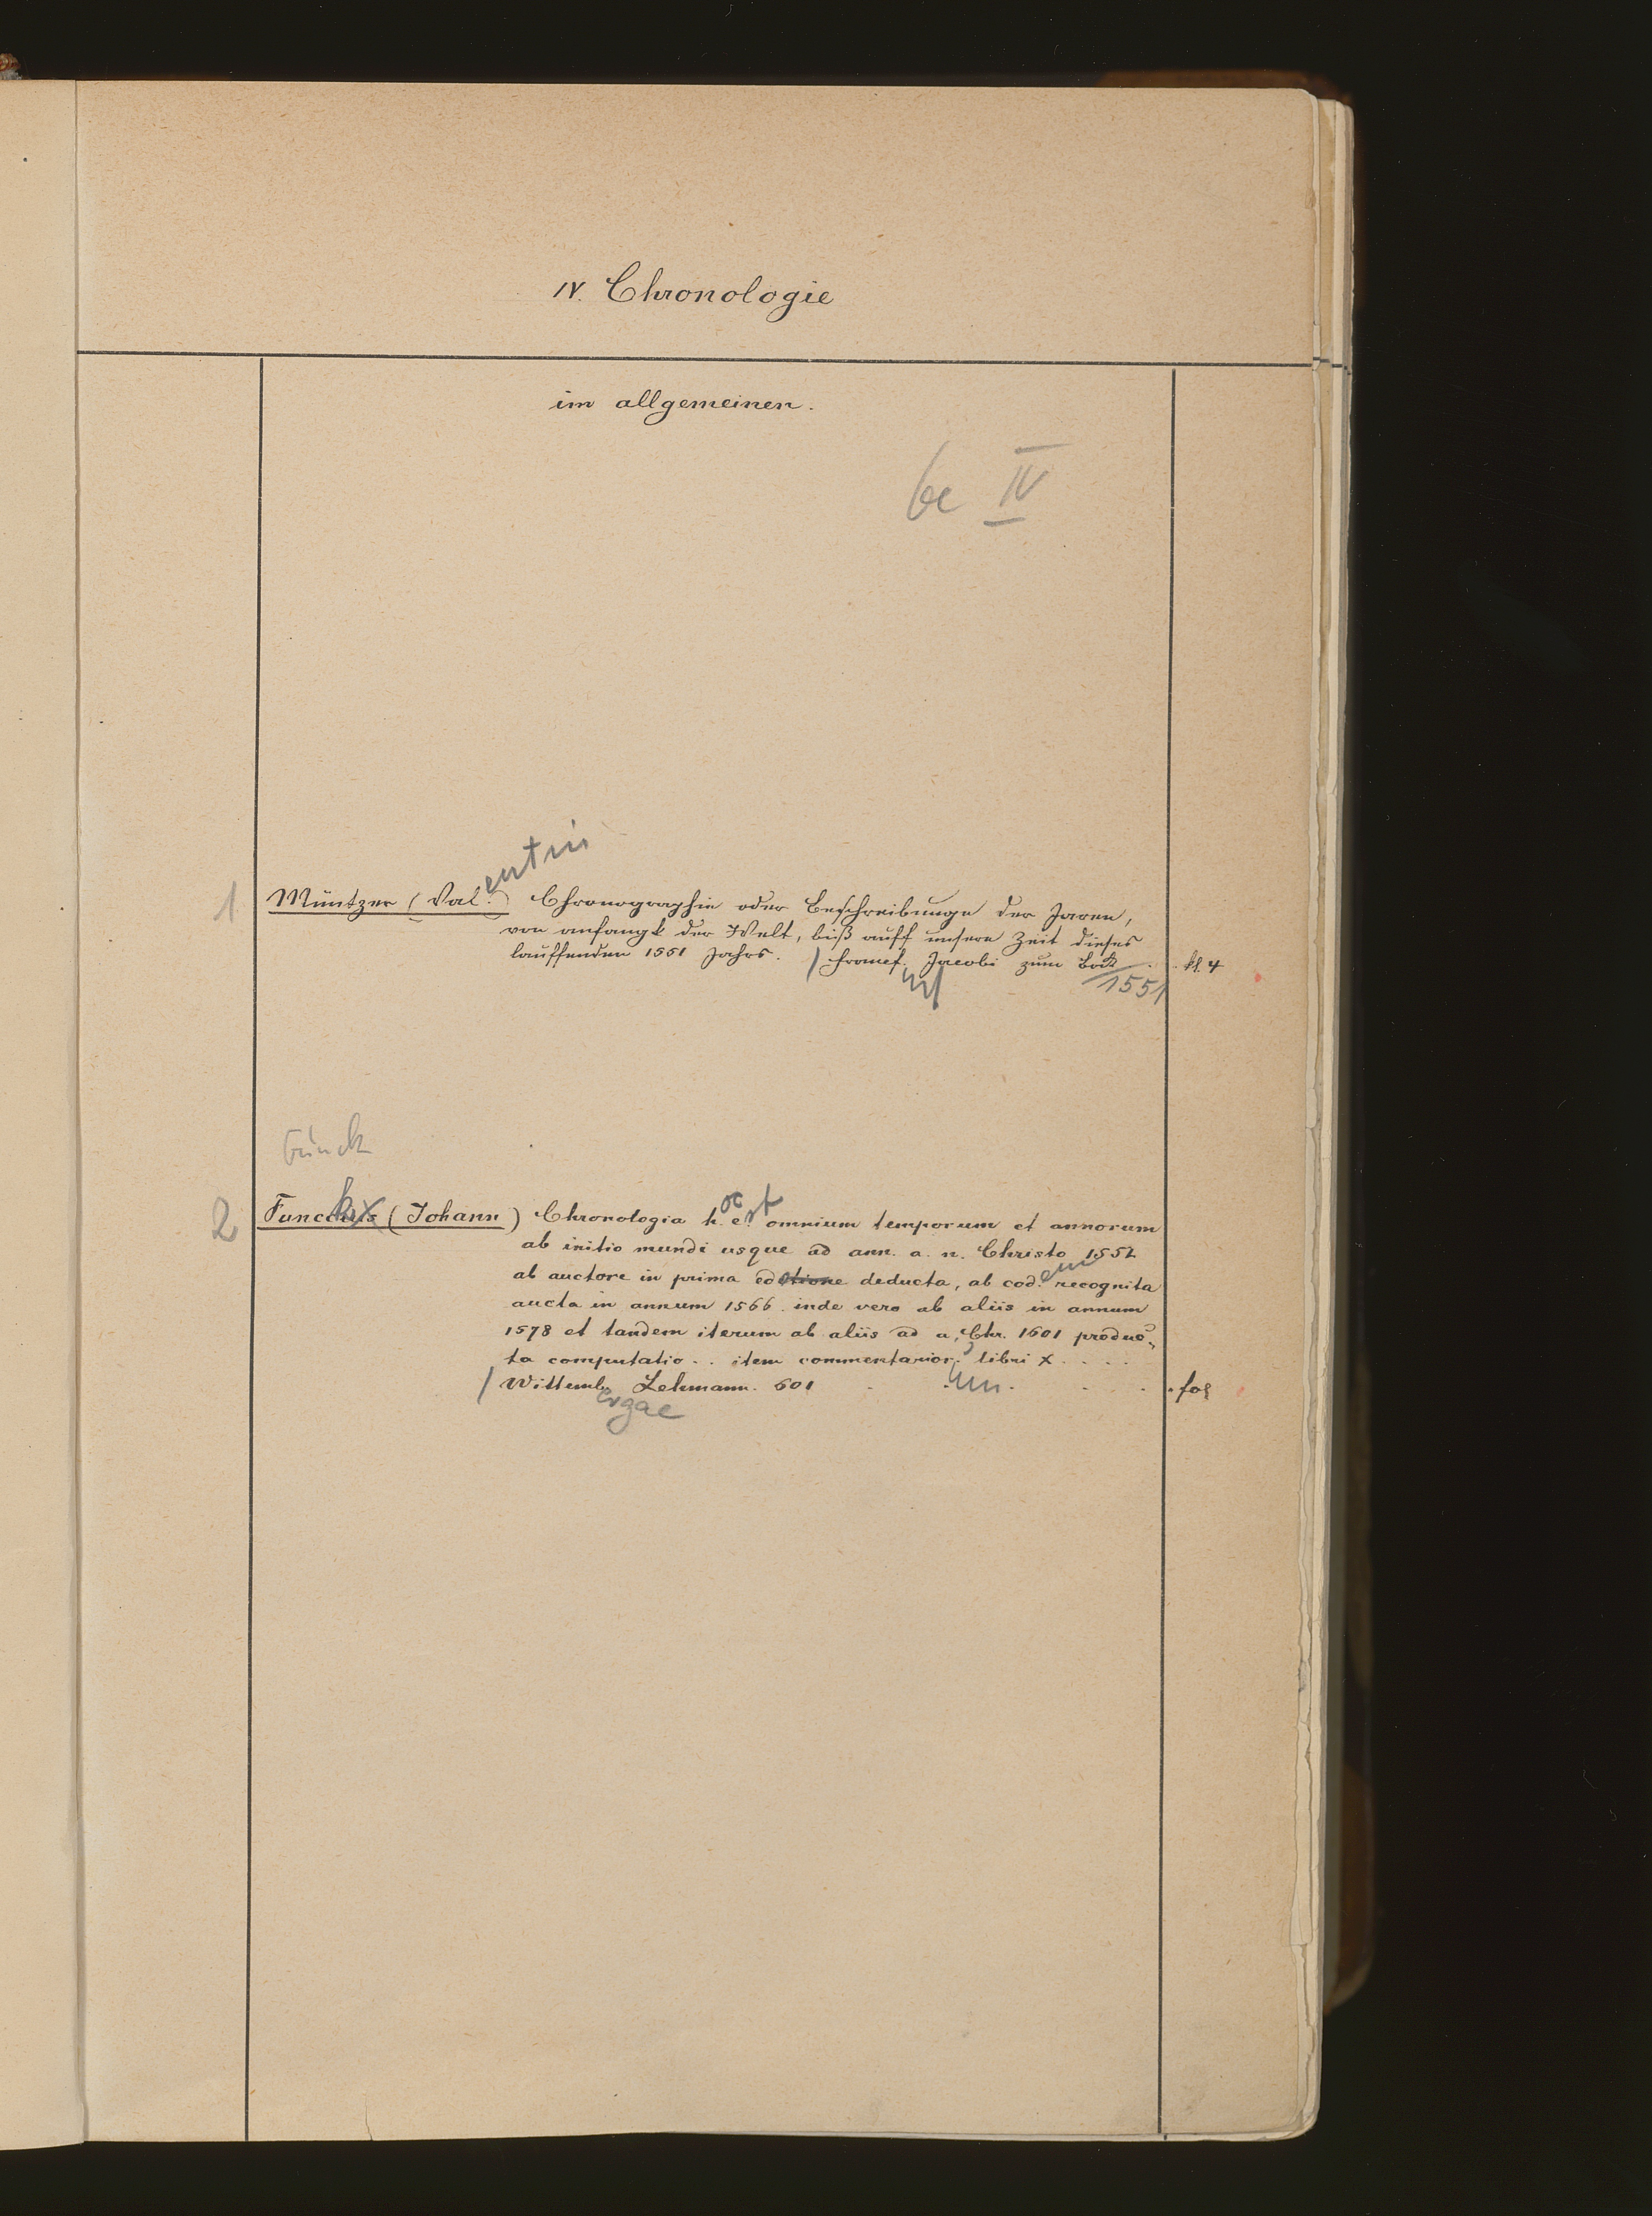 IV. Chronologie
im allgemeinen.
be IV
entin
1 Müntzer (Val.) Chronographie oder Beschreibunge der Jaren,
von anfangk der Welt, biß auff unsere Zeit dieses
lauffenden 1551 Jahrs. / Francf. Jacobi zum Bock . . kl. 4
1551
Funck
2 Funccius (Johann) Chronologia h. e. omnium temporum et annorum
oc st
ab initio mundi usque ad ann. a. n. Christo 1552
ab auctore in prima editione deducta, ab eod. recognita
em
aucta in annum 1566. inde vero ab aliis in annum
1578 et tandem iterum ab aliis ad a. Chr. 1601 produc-
ta computatio . . item commentarior. libri X . . . .
um
/ Wittemb. Lehmann. 601 . . . . . fol
ergae